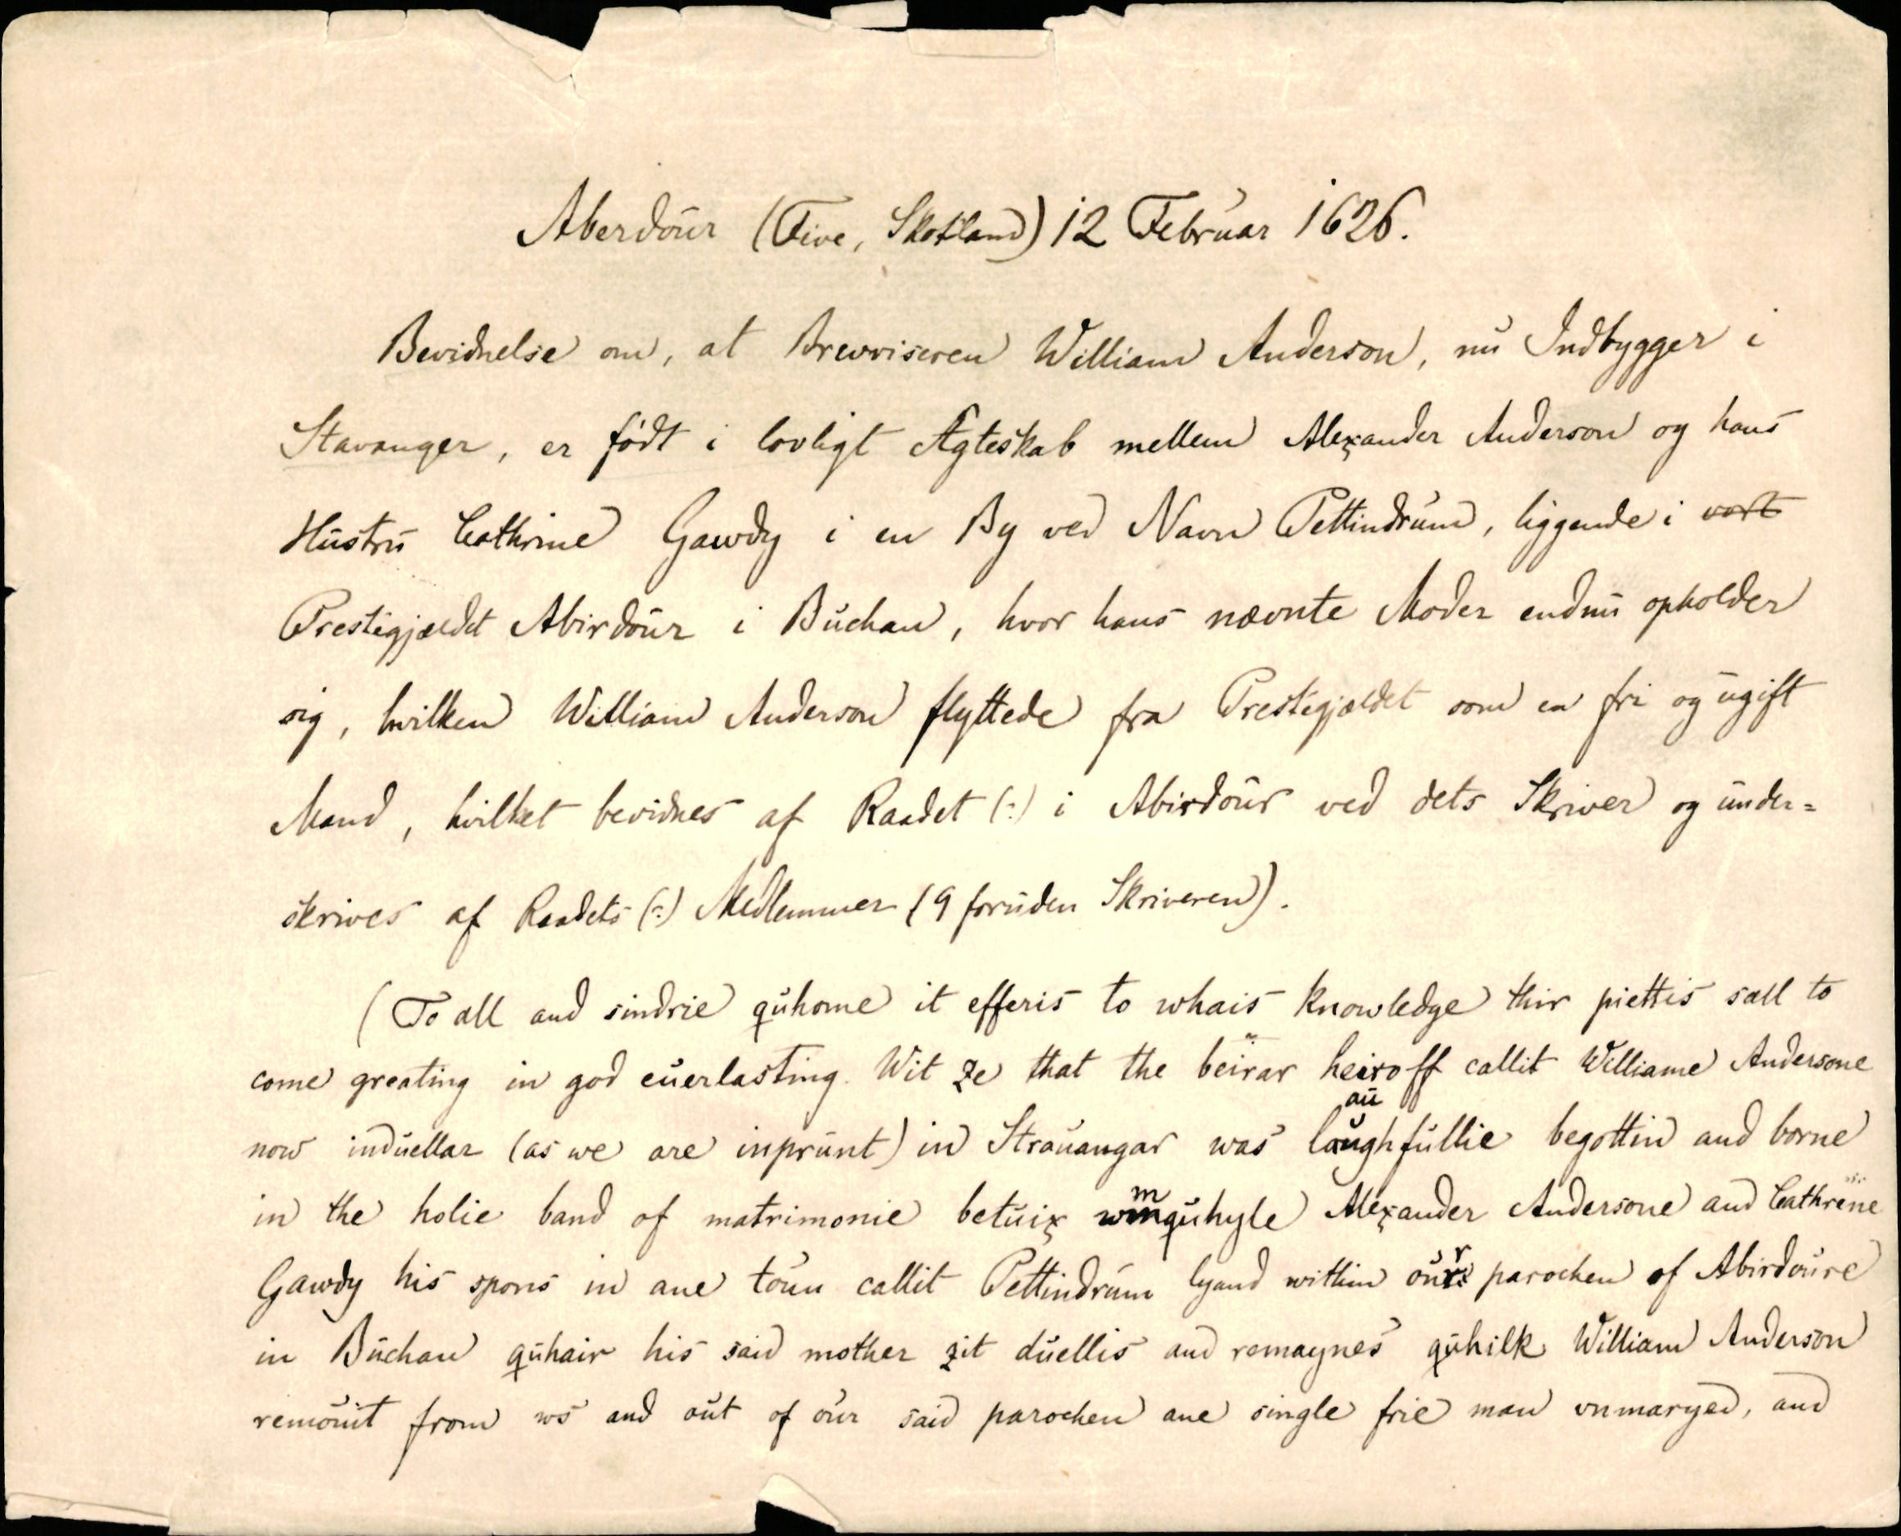 Aberdour (Five, Skotland) 12 Februar 1626.
Bevidnelse om, at Brevviseren William Anderson, nu Indbygger i
Stavanger, er födt i lovligt Ægteskab mellem Alexander Anderson og hans
Hustru Cathrine Gawdy i en By ved Navn Pettindrum, liggende i vort
Prestegjældet Abirdour i Buchan, hvor hans nævnte Moder endnu opholder
sig, hvilken William Anderson flyttede fra Prestegjældet som en fri og ugift
Mand, hvilket bevidnes af Raadet (:) i Abirdour ved dets Skriver og under=
skrives af Raadets (:) Medlemmer (9 foruden Skriveren).
(To all and sindrie quhome it efferis to whais knowledge thir piettis sall to
come greating in god euerlasting. Wit ze that the beirar heiroff callit Williame Andersone
now induellar (as we are inprunt) in Strauangar was laughfullie begottin and borne
in the holie band of matrimonie betuix wmquhyle Alexander Andersone and Cathrene
Gawdy his spous in ane toun callit Pettindrum lyand within our parochen of Abirdoure
in Buchan quhair his said mother zit duellis and remaynes quhilk William Anderson
remouit from ws and out of our said parochen ane single frie man vnmaryed, and